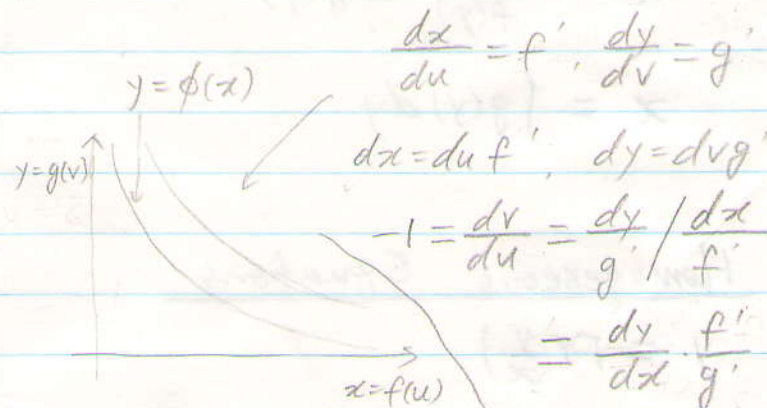 dx/du = f', dy/dv = g'
y = ϕ(x)
dx = du f', dy = dv g'
y = g(v)
-1 = dv/du = dy/g' / dx/f'
= dy/dx · f'/g'
x = f(u)